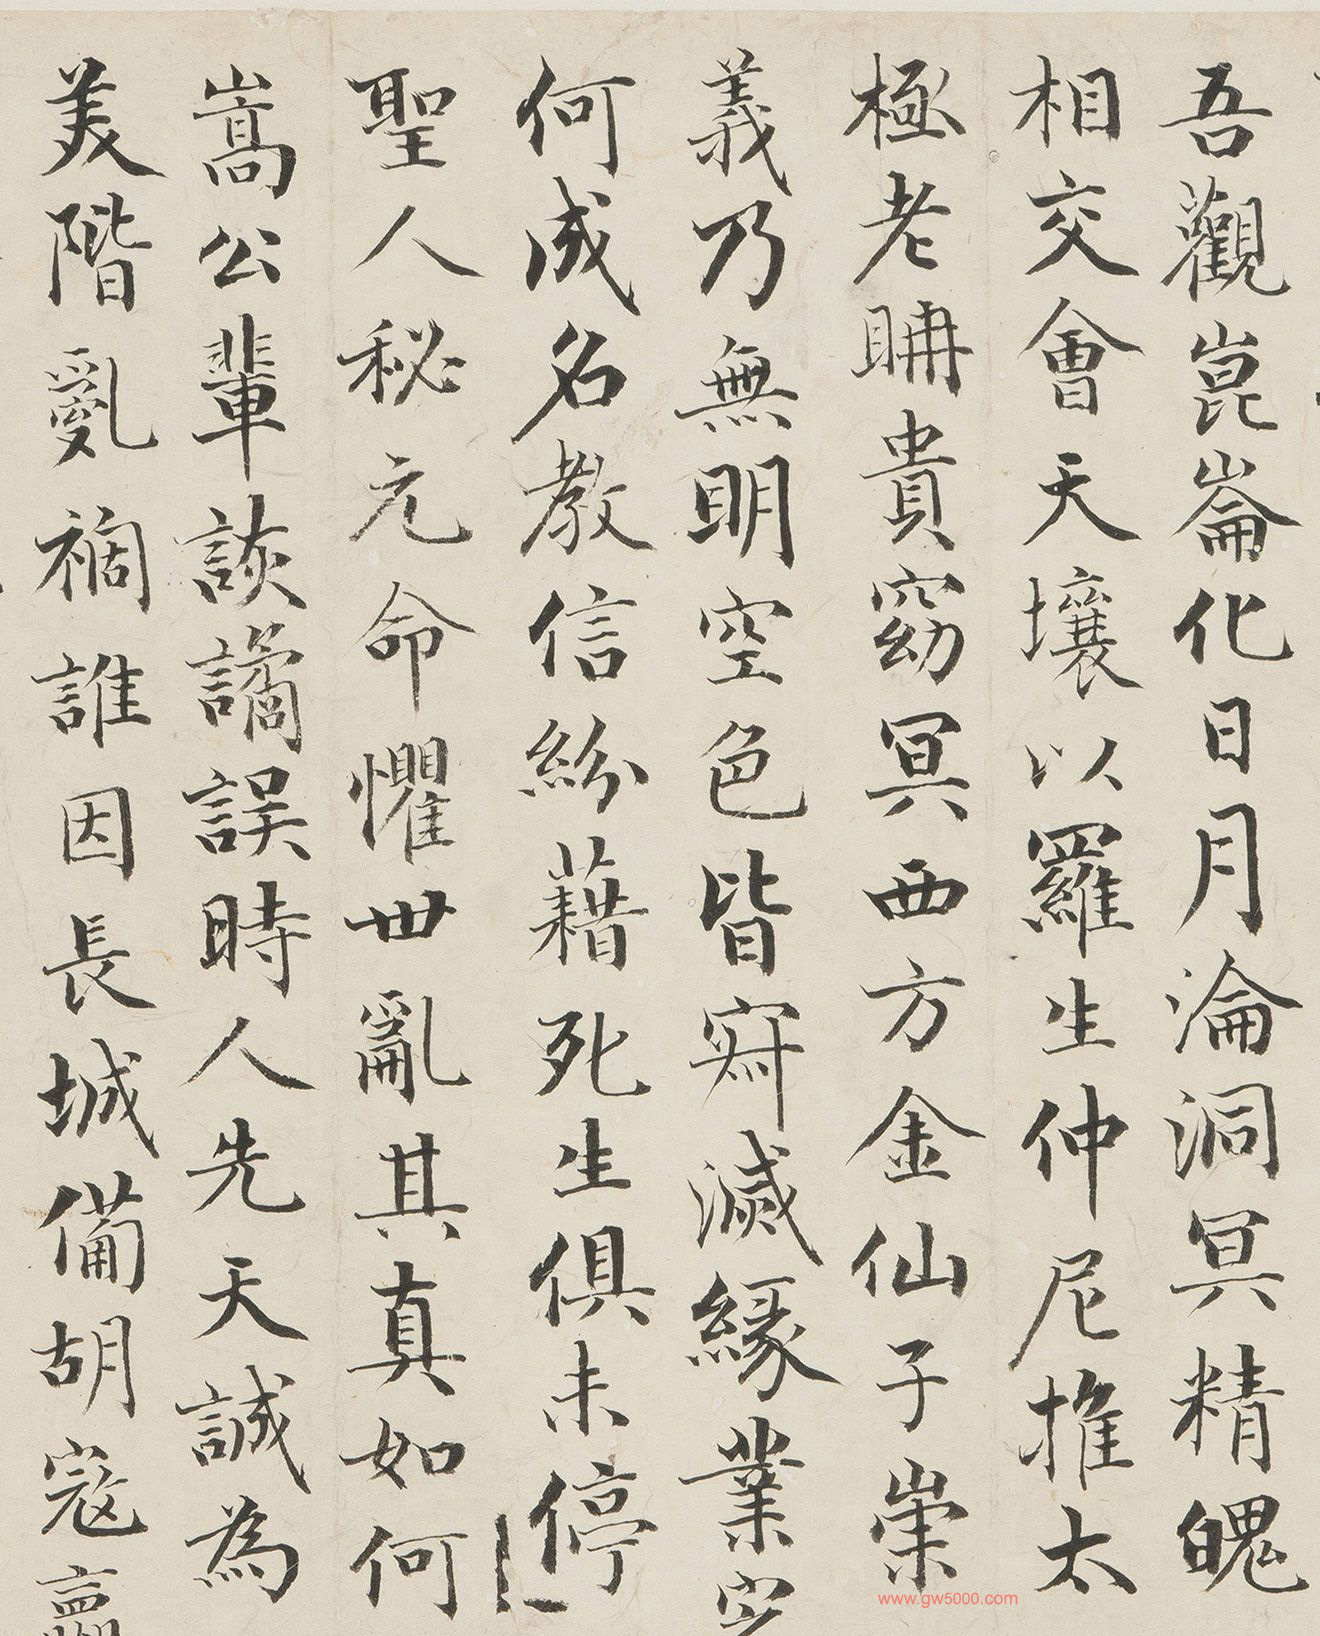 吾觀崑崙化日月淪洞冥精魄
相交會天壤以羅生仲尼推太
極老聃貴窈冥西方金仙子崇
義乃無明空色皆寂滅緣業空
何成名教信紛藉死生俱未停
聖人秘元命懼世亂其真如何
嵩公輩詼譎誤時人先天誠為
美階亂禍誰因長城備胡寇嬴
www.gw5000.com